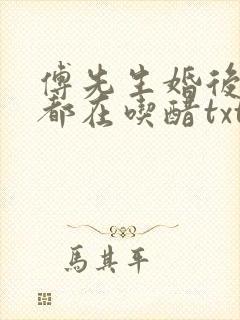 傅先生婚後
都在喫醋txt
馬其平